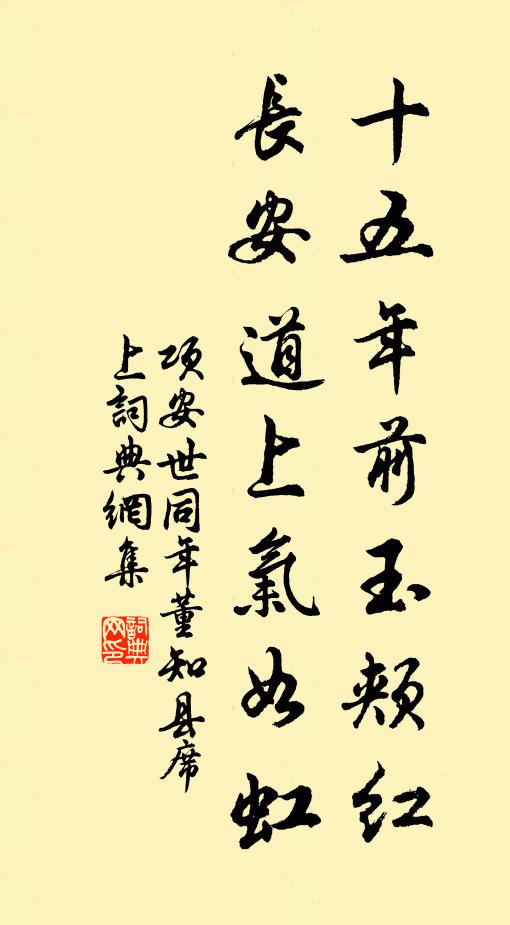 十五年前玉頰紅
長安道上氣如虹
項安世同年董知县席
上詞典網集
詞典網印